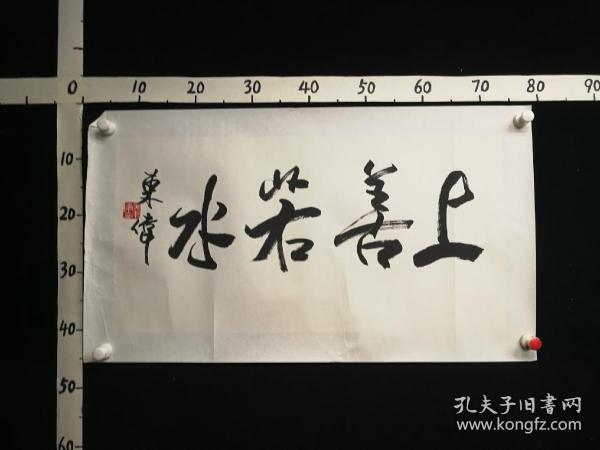 0 10 20 30 40 50 60 70 80 90
10
20
30
40
50
60
上善若水
東偉
孔夫子旧書网
www.kongfz.com